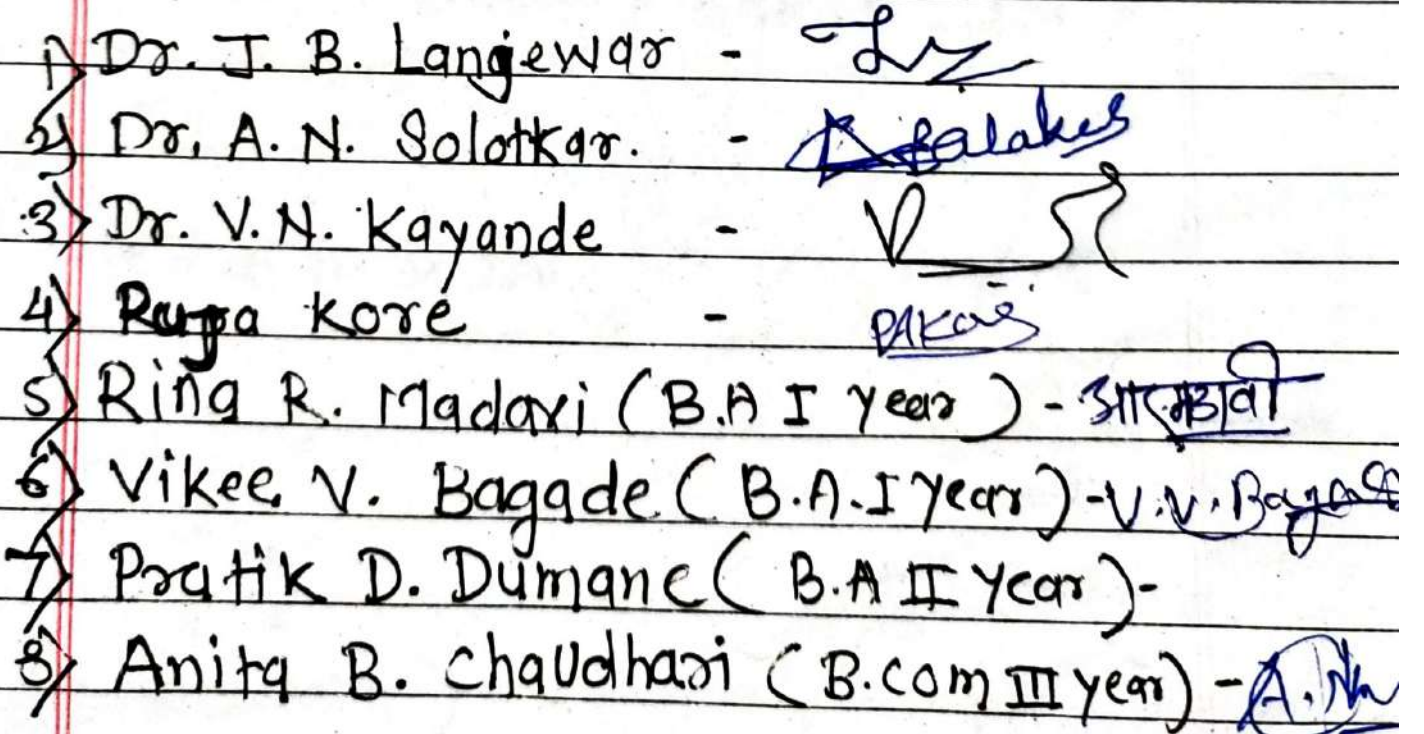 1) Dr. J. B. Langewar -
2) Dr. A. N. Solotkar. -
3) Dr. V. N. Kayande -
4) Kore -
5) Rina R. Madavi (B.A I year) -
6) Vikee V. Bagade (B.A. I year) - V.V. Bagade
7) Pratik D. Dumane (B.A II year) -
8) Anita B. Chaudhari (B.com III year) -